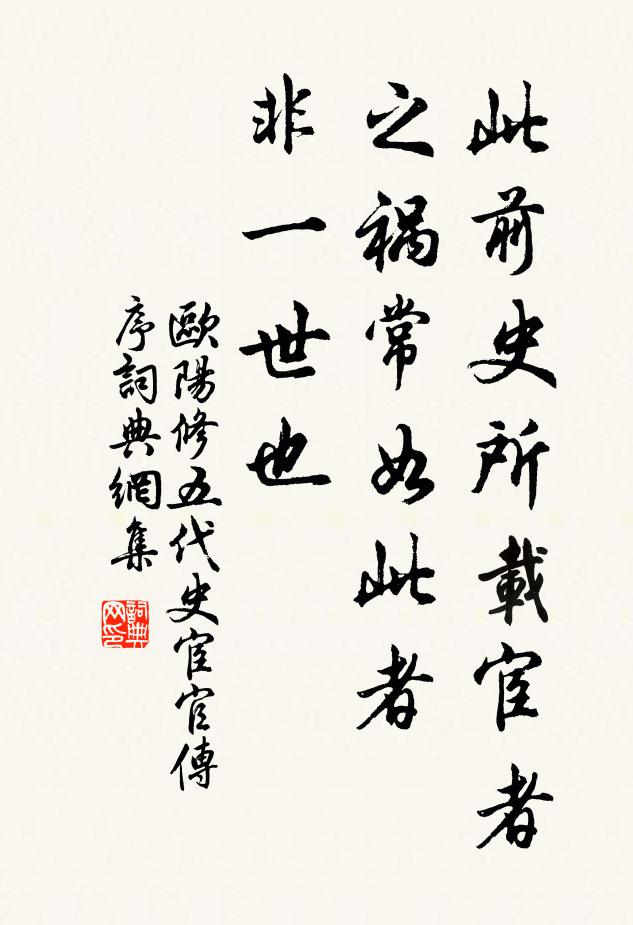 此前史所載宦者
之禍常如此者
非一世也
歐陽修五代史宦官傳
序詞典網集
詞典网印